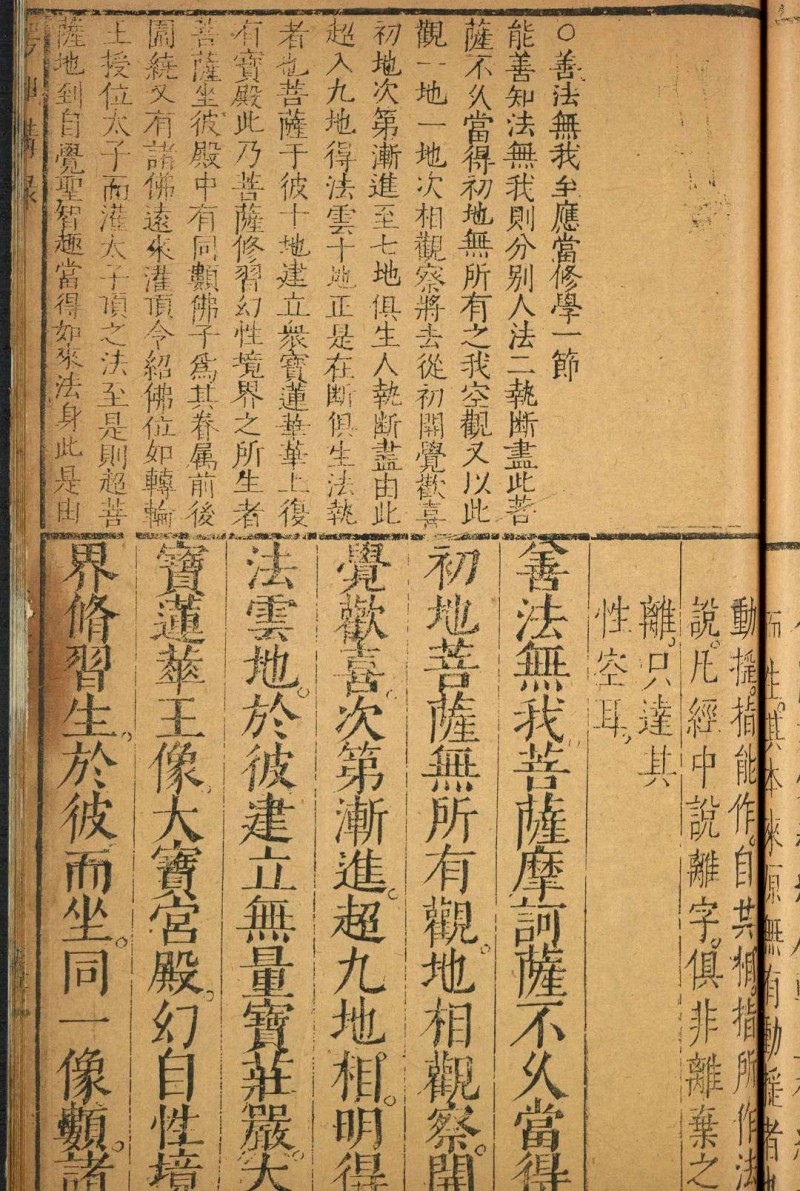 ○善法無我至應當修學一節
能善知法無我則分别人法二執断盡此菩
薩不久當得初地無所有之我空觀又以此
觀一地一地次相觀察將去從初開覺歡喜
初地次第漸進至七地俱生人執断盡由此
超入九地得法雲十地正是在断俱生法執
者也菩薩于彼十地建立衆寶蓮華華上復
有寶殿此乃菩薩修習幻性境界之所生者
菩薩坐彼殿中有同類佛子爲其眷属前後
圍繞又有諸佛遠來灌頂令紹佛位如轉輪
王授位太子而灌太子頂之法至是則超菩
薩地到自覺聖智趣當得如來法身此是由
動揺。揩能作。自共相。揩所作法
說。凡經中說離字。俱非離棄之
離。只達其
性空耳。
善法無我菩薩摩訶薩不久當得
初地菩薩無所有觀。地相觀察。開
覺歡喜。次第漸進。超九地相。明得
法雲地。於彼建立無量寶莊嚴。大
寶蓮華王像。大寶宮殿。幻自性境
界脩習生。於彼而坐。同一像類。諸